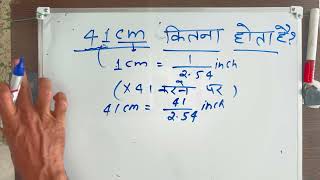 41cm कितना होता है?
1cm = 1/2.54 inch
(×41 करने पर)
41cm = 41/2.54 inch